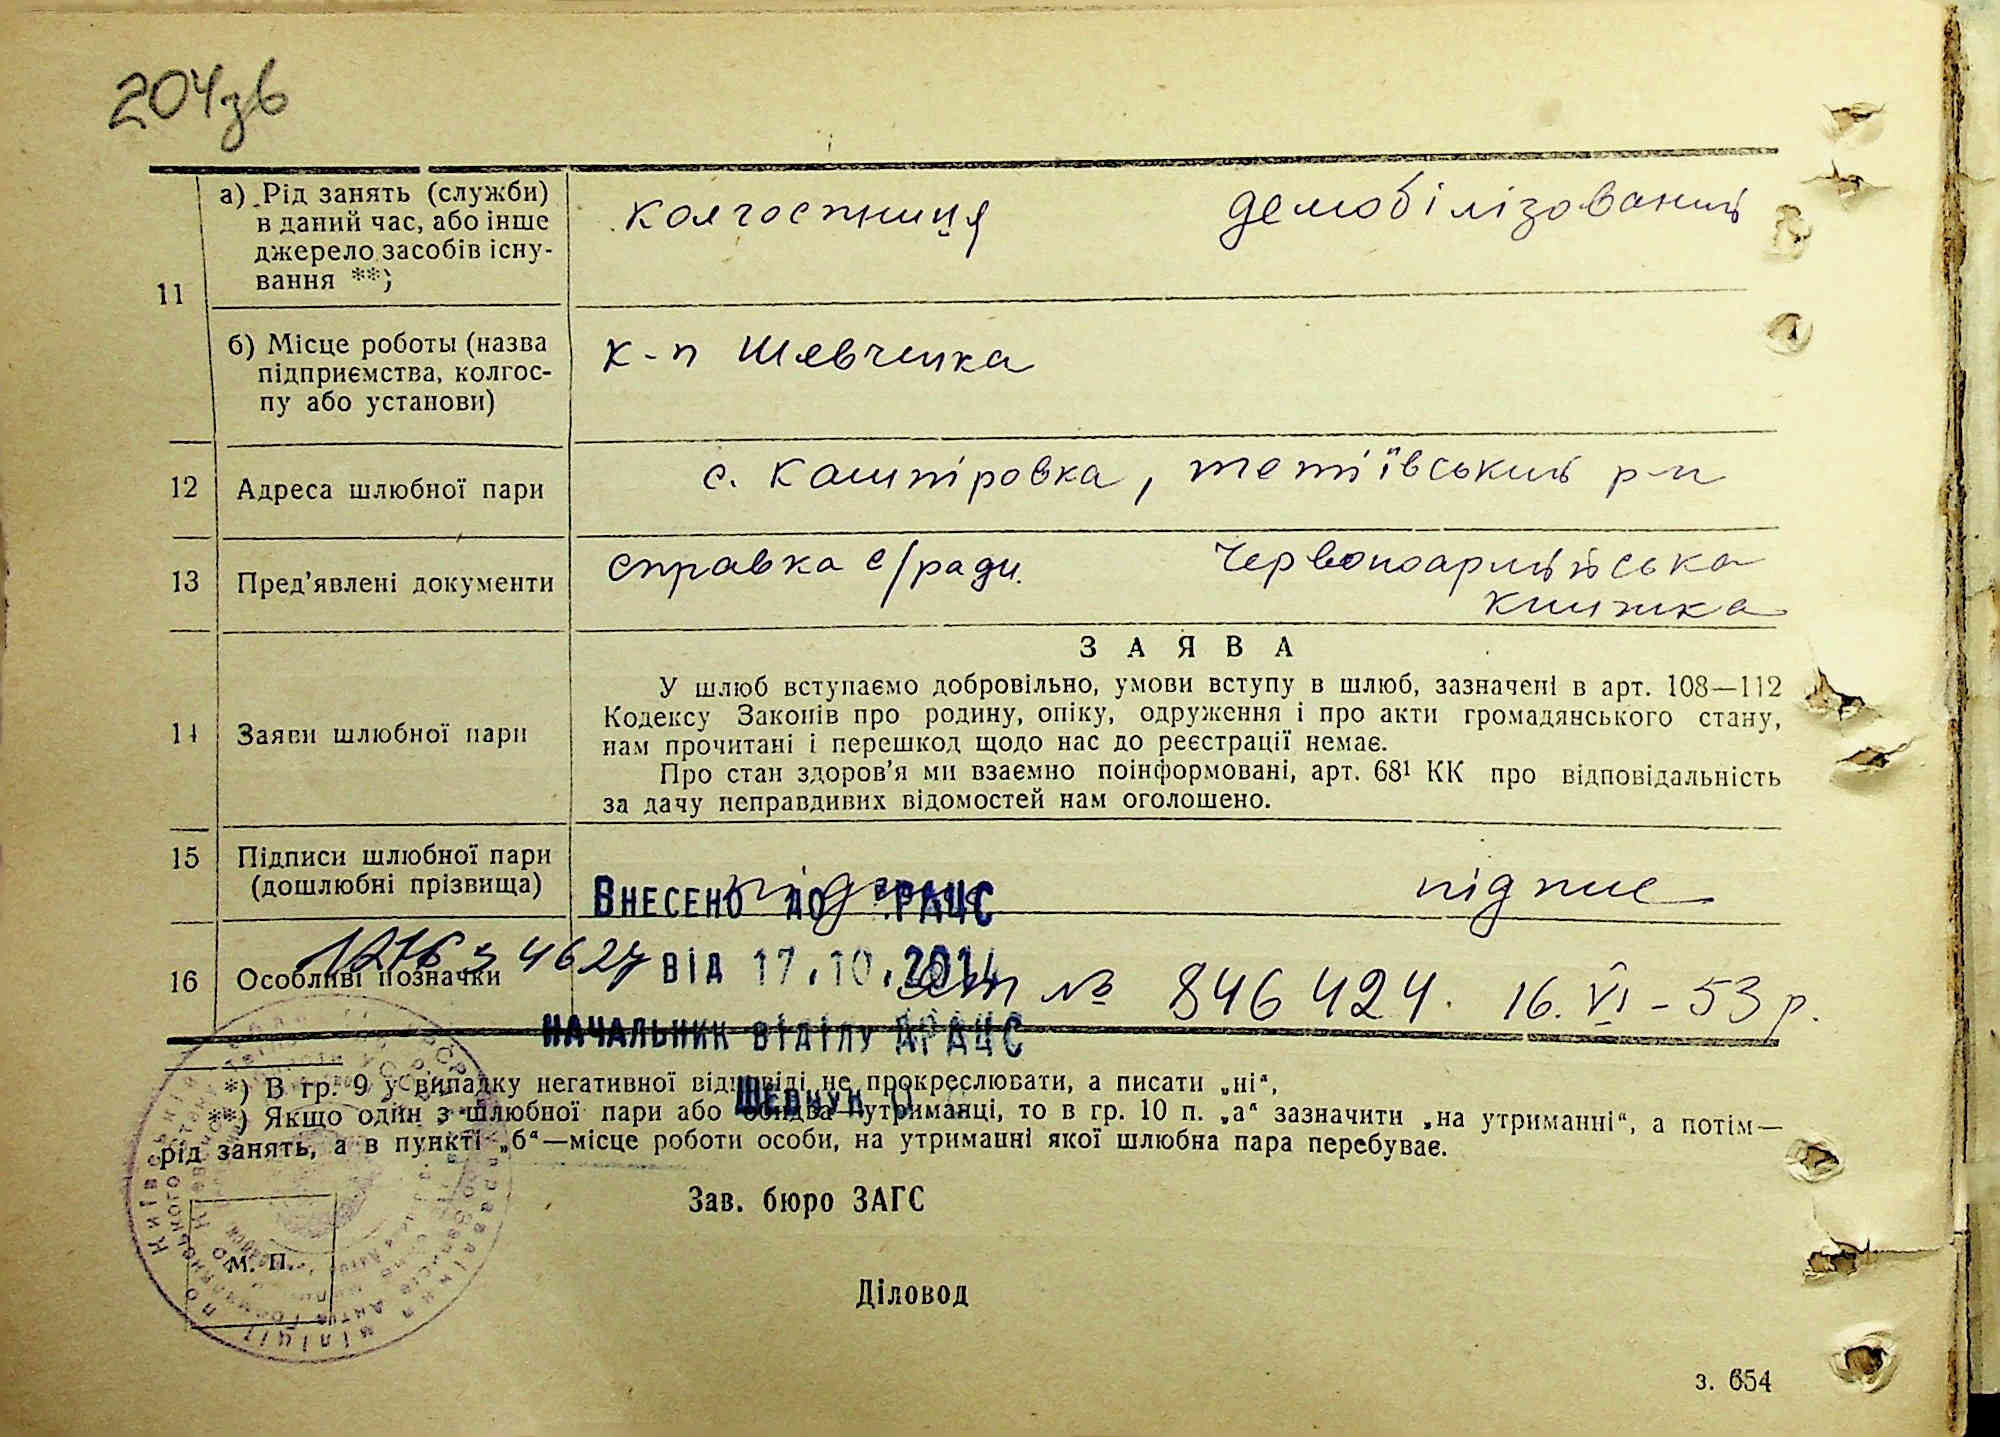 204зв
а) Рід занять (служби)
в даний час, або інше
джерело засобів існу-
вання **)
колгоспниця демобілізований
11
б) Місце роботы (назва
підприємства, колгос-
пу або установи)
к-п Шевченка
12 Адреса шлюбної пари с. Каштіровка, тетіївський р-н
13 Пред’явлені документи справка с/ради. Червоноармійська
книжка
ЗАЯВА
14 Заяви шлюбної пари
У шлюб вступаємо добровільно, умови вступу в шлюб, зазначені в арт. 108—112
Кодексу Законів про родину, опіку, одруження і про акти громадянського стану,
нам прочитані і перешкод щодо нас до реєстрації немає.
Про стан здоров’я ми взаємно поінформовані, арт. 68¹ КК про відповідальність
за дачу неправдивих відомостей нам оголошено.
15 Підписи шлюбної пари
(дошлюбні прізвища)
підпис підпис
Внесено до ДРАЦС
16 Особливі позначки
від 17.10.2014
№ 846424. 16.VI-53 р.
Начальник відділу ДРАЦС
*) В гр. 9 у випадку негативної відповіді не прокреслювати, а писати „ні“,
**) Якщо один з шлюбної пари або обидва—утриманці, то в гр. 10 п. „а“ зазначити „на утриманні“, а потім—
рід занять, а в пункті „б“—місце роботи особи, на утриманні якої шлюбна пара перебуває.
Зав. бюро ЗАГС
м. п.
Діловод
з. 654